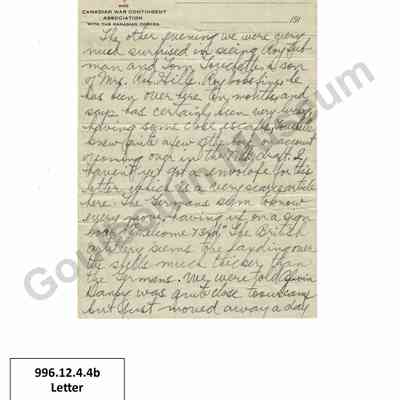 AND
CANADIAN WAR CONTINGENT
ASSOCIATION
WITH THE CANADIAN FORCES
191
The other evening we were very
much surprised in seeing Roy
man and Tom a son
of Mrs. Hills. Roy he
has been over here months and
says has certainly been very
having some close escapes.
knew quite a few
coming over in the draft. I
haven't yet got a envelope for this
letter, which is a very scarce article
here. The Germans seem to know
every move, having us on a sign
"Welcome 73rd" The British
artillery seems to be handing over
the shells much thicker than
the Germans. We were told
was quite close to us
but just moved away a day
Goulbourn Museum
996.12.4.4b
Letter